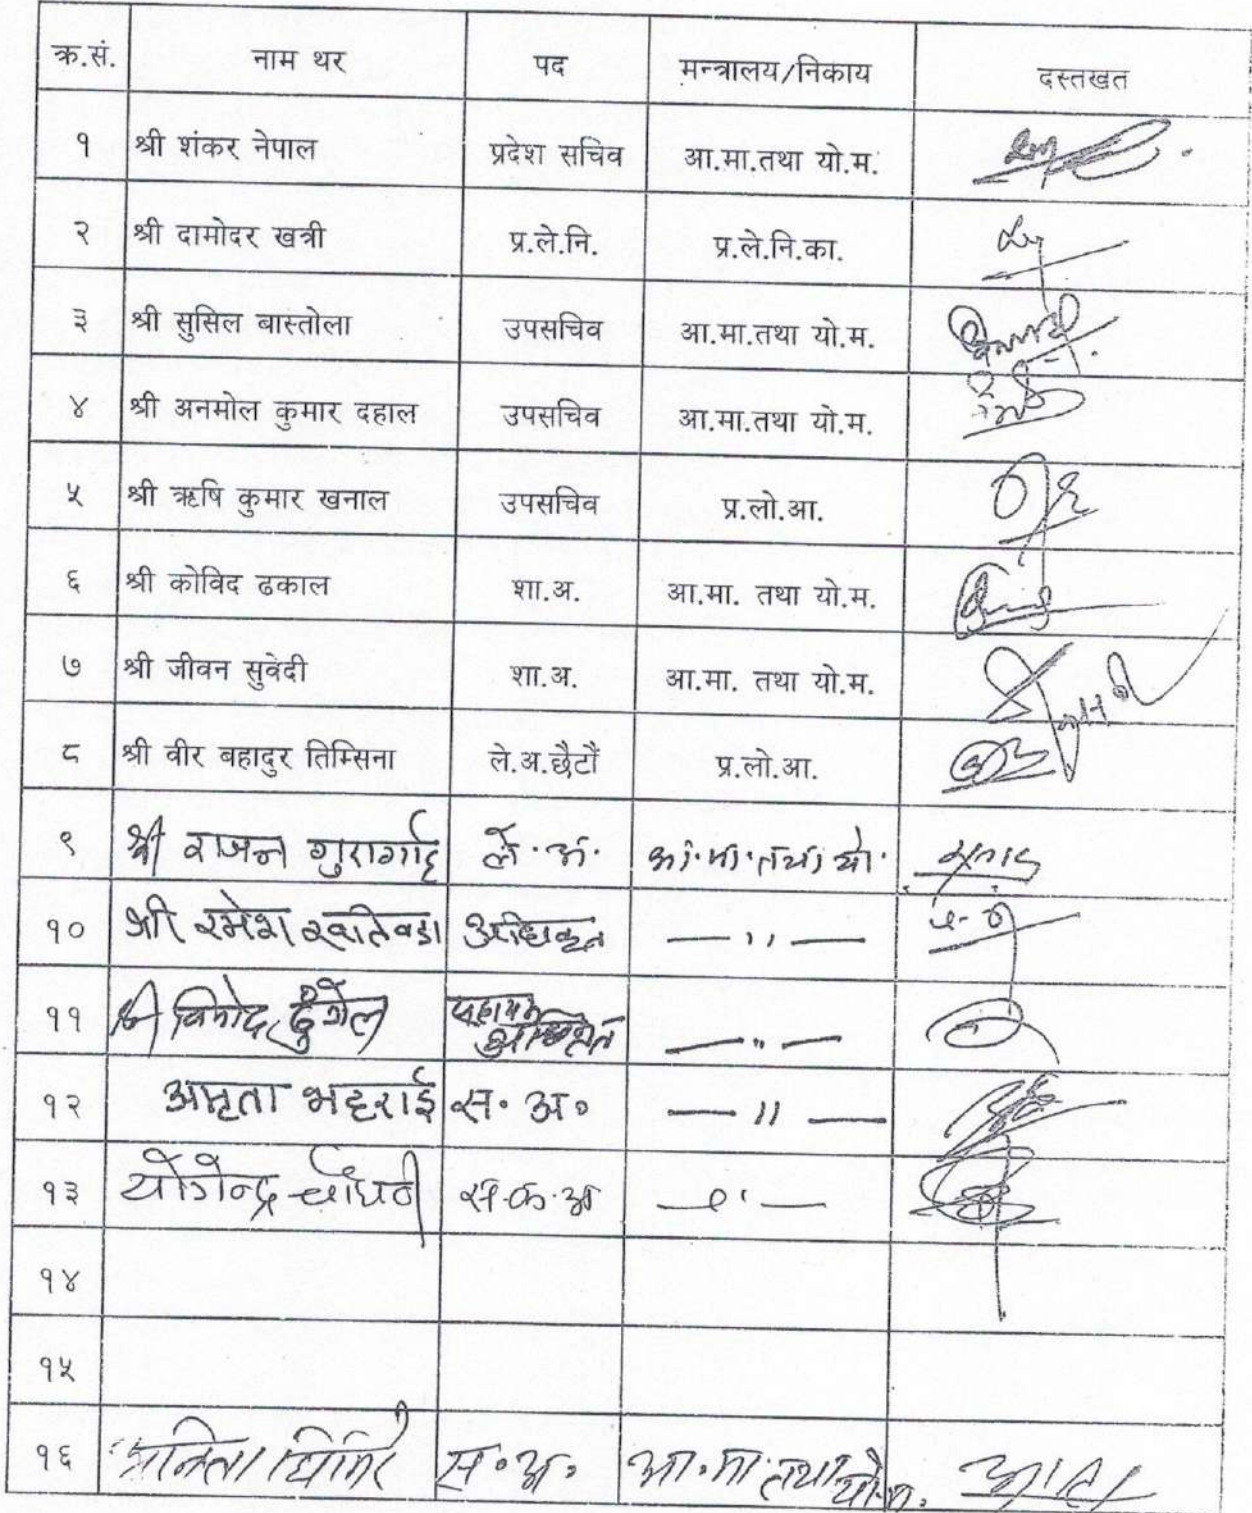 क्र.सं. नाम थर पद मन्त्रालय/निकाय दस्तखत
१ श्री शंकर नेपाल प्रदेश सचिव आ.मा.तथा यो.म.
२ श्री दामोदर खत्री प्र.ले.नि. प्र.ले.नि.का.
३ श्री सुसिल बास्तोला उपसचिव आ.मा.तथा यो.म.
४ श्री अनमोल कुमार दहाल उपसचिव आ.मा.तथा यो.म.
५ श्री ऋषि कुमार खनाल उपसचिव प्र.लो.आ.
६ श्री कोविद ढकाल शा.अ. आ.मा. तथा यो.म.
७ श्री जीवन सुवेदी शा.अ. आ.मा. तथा यो.म.
८ श्री वीर बहादुर तिम्सिना ले.अ.छैटौं प्र.लो.आ.
९ श्री राजन गुरागाई ले.अ. आ.मा.तथा यो.
१० श्री रमेश खतिवडा अधिकृत —〃—
११ श्री विनोद ढुंगेल सहायक अधिकृत —〃—
१२ अमृता भट्टराई स.अ. —〃—
१३ योगेन्द्र चौधरी स.क.अ —〃—
१४
१५
१६ घिमिरे स.अ. आ.मा तथा यो.म.